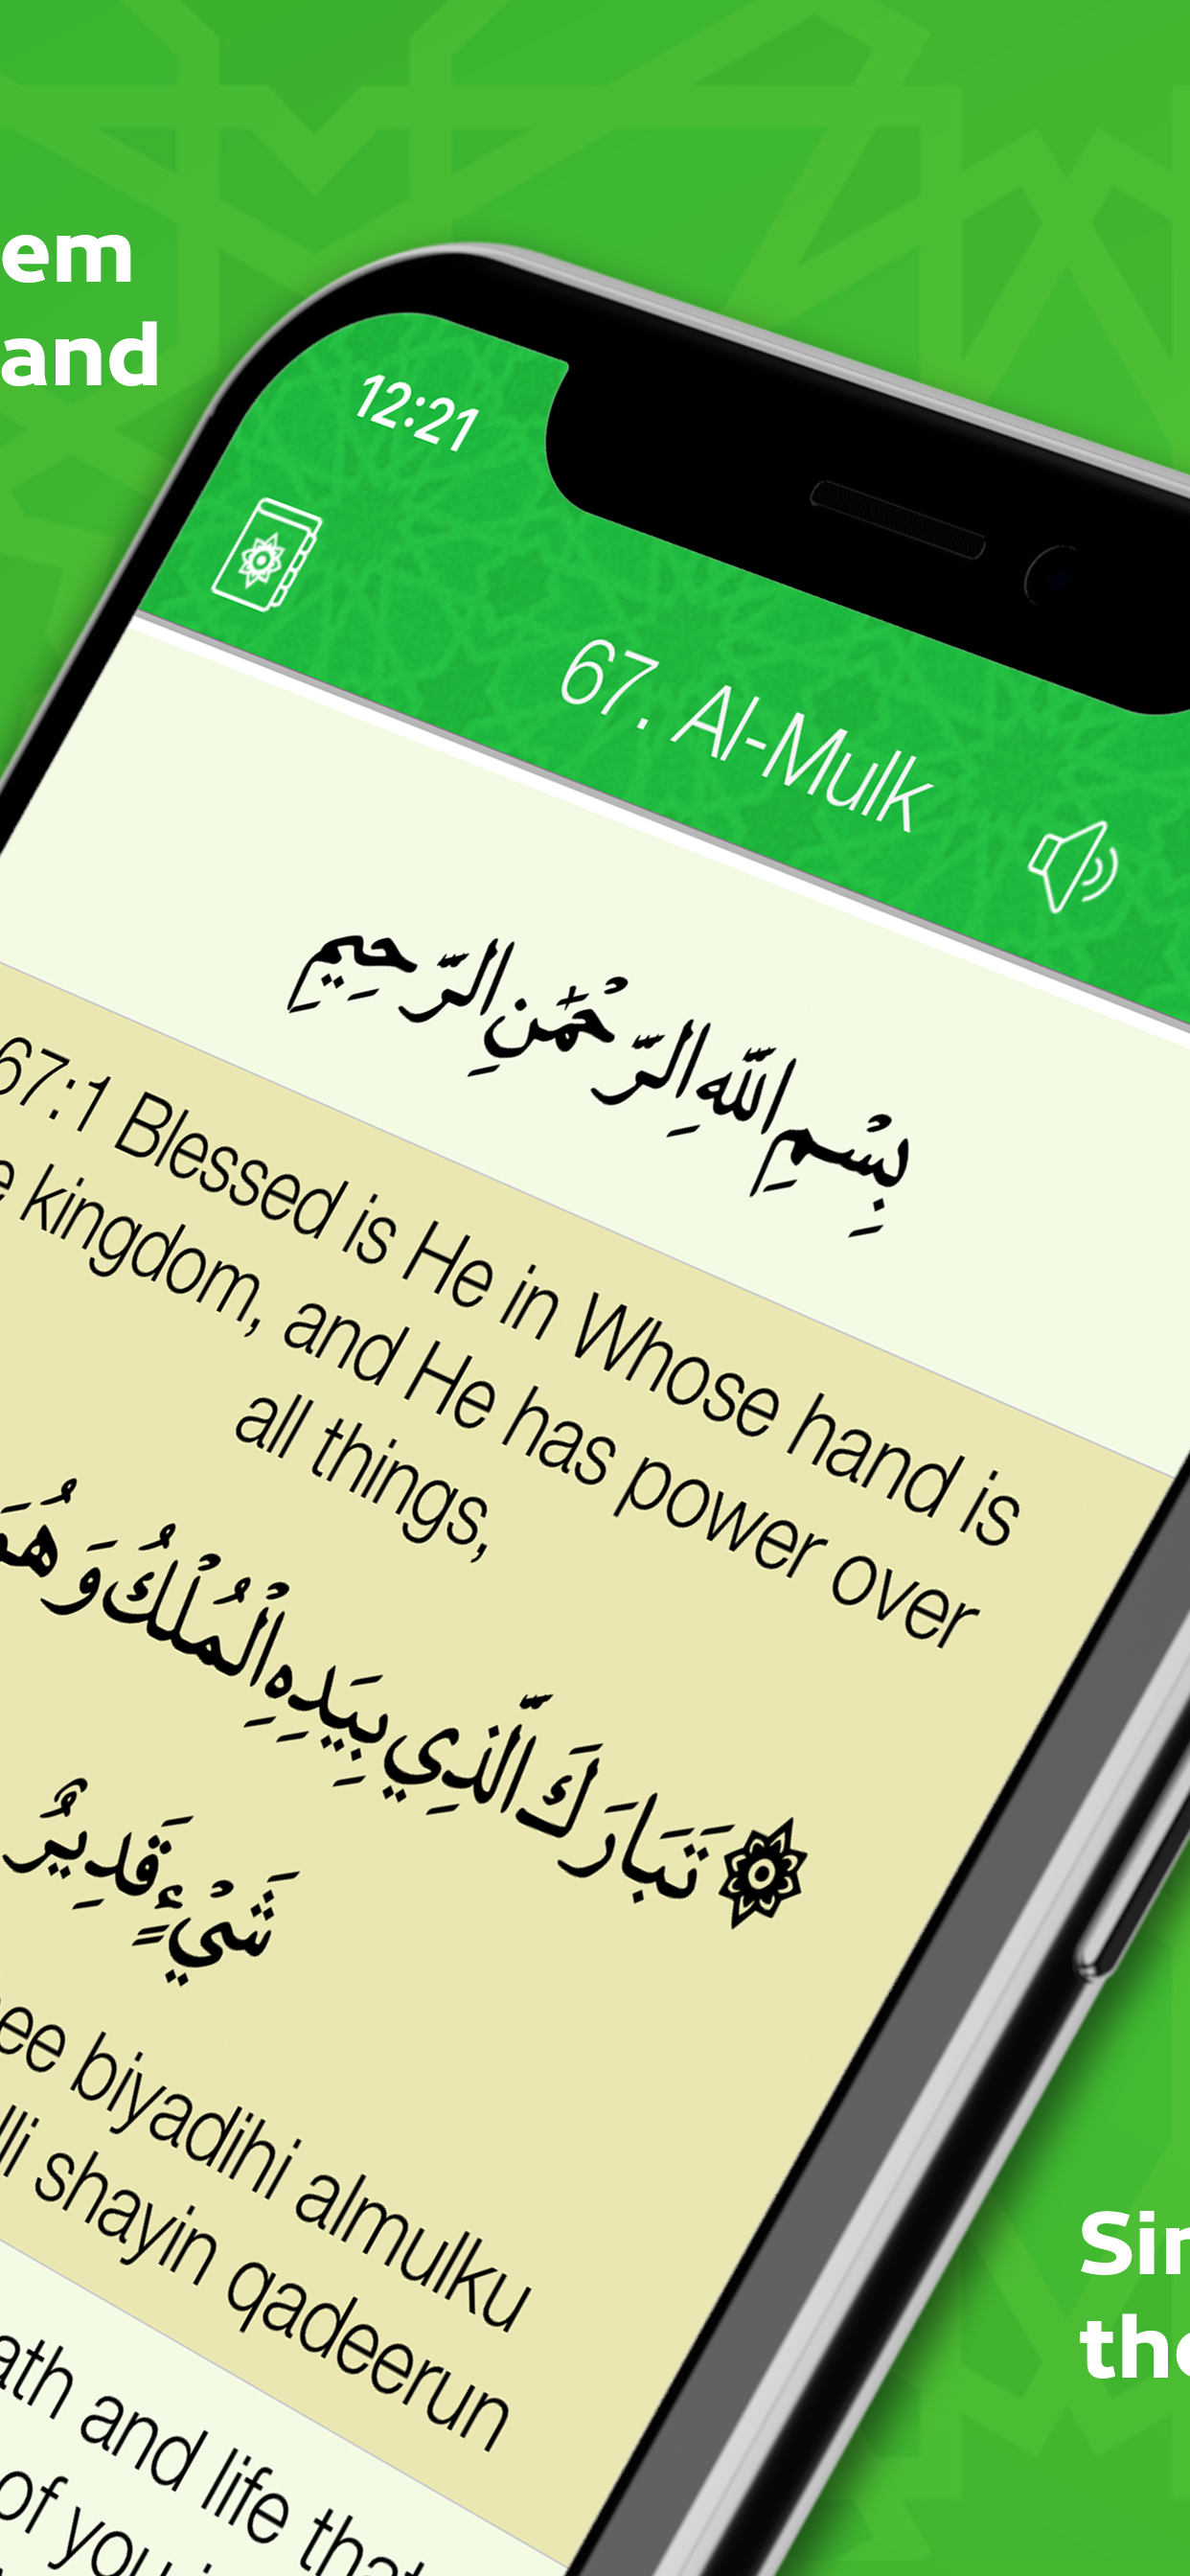 em
and
12:21
67. Al-Mulk
بِسْمِ اللَّهِ الرَّحْمَٰنِ الرَّحِيمِ
67:1 Blessed is He in Whose hand is
kingdom, and He has power over
all things,
تَبَارَكَ الَّذِي بِيَدِهِ الْمُلْكُ وَهُوَ
شَيْءٍ قَدِيرٌ
ee biyadihi almulku
lli shayin qadeerun
ath and life that
of you
Sin
the